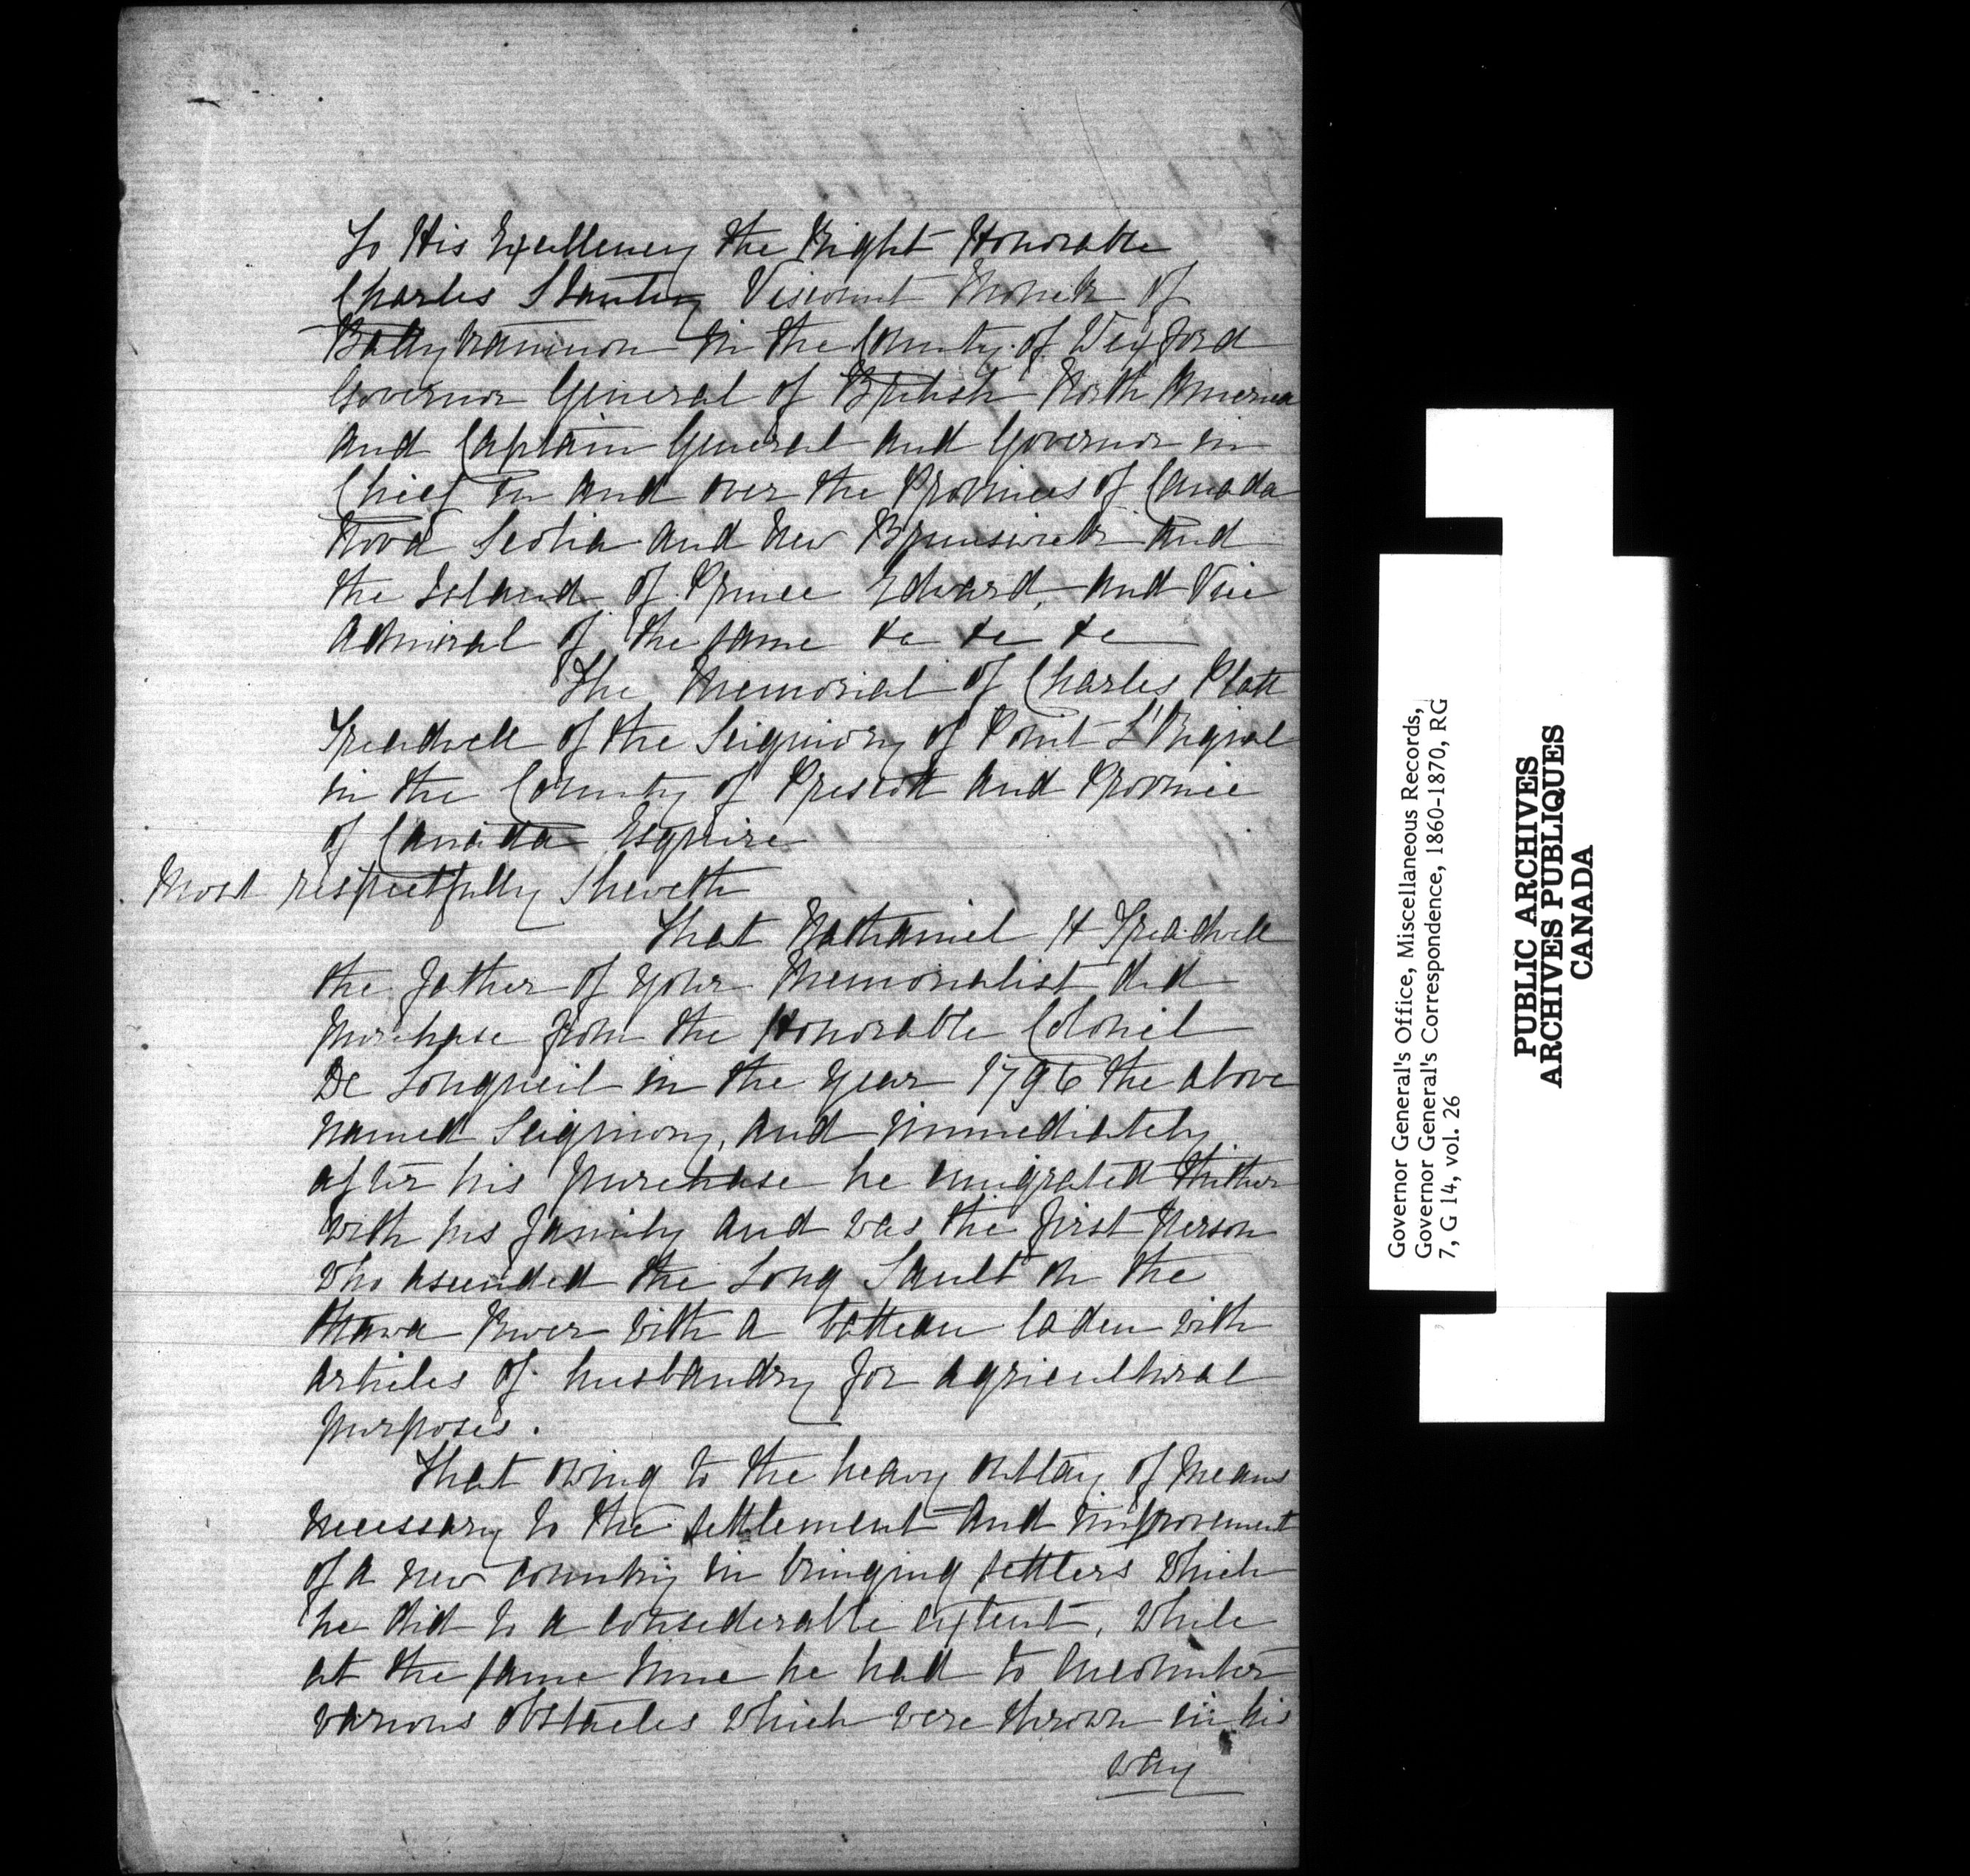 To His Excellency the Right Honorable
Charles Stanley Viscount Monck of
Ballytrammon in the County of Wexford
Governor General of British North America
and Captain General and Governor in
Chief in and over the Provinces of Canada
Nova Scotia and New Brunswick and
the Island of Prince Edward, and Vice
Admiral of the same &c &c &c
The Memorial of Charles Platt
Treadwell of the Seigniory of Point L'Orignal
in the County of Prescott and Province
of Canada Esquire
Most respectfully Sheweth
That Nathaniel H Treadwell
the father of your Memorialist did
purchase from the Honorable Colonel
De Longueil in the year 1796 the above
named Seigniory, and immediately
after his purchase he emigrated thither
with his family and was the first person
who ascended the Long Sault on the
Ottawa River with a batteau laden with
articles of husbandry for agricultural
purposes.
That owing to the heavy outlay of means
necessary to the settlement and improvement
of a new country in bringing settlers which
he did to a considerable extent, while
at the same time he had to encounter
various obstacles which were thrown in his
way
Governor General's Office, Miscellaneous Records,
Governor General's Correspondence, 1860-1870, RG
7, G 14, vol. 26
PUBLIC ARCHIVES
ARCHIVES PUBLIQUES
CANADA